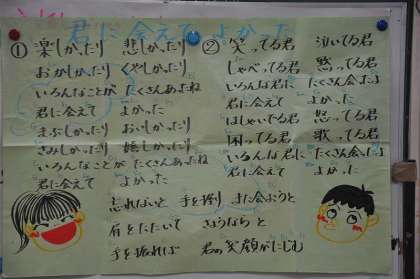 君に会えてよかった
① 楽しかったり 悲しかったり
おかしかったり くやしかったり
いろんなことが たくさんあったね
君に会えて よかった
まぶしかったり おいしかったり
さみしかったり 嬉しかったり
いろんなことが たくさんあったね
君に会えて よかった
② 笑ってる君 泣いてる君
しゃべってる君 黙ってる君
いろんな君に たくさん会ったよ
君に会えて よかった
はしゃいでる君 怒ってる君
困ってる君 歌ってる君
いろんな君に たくさん会ったよ
君に会えて よかった
忘れないと 手を握り また会おうと
肩をたたいて さようならと
手を振れば 君の笑顔がにじむ